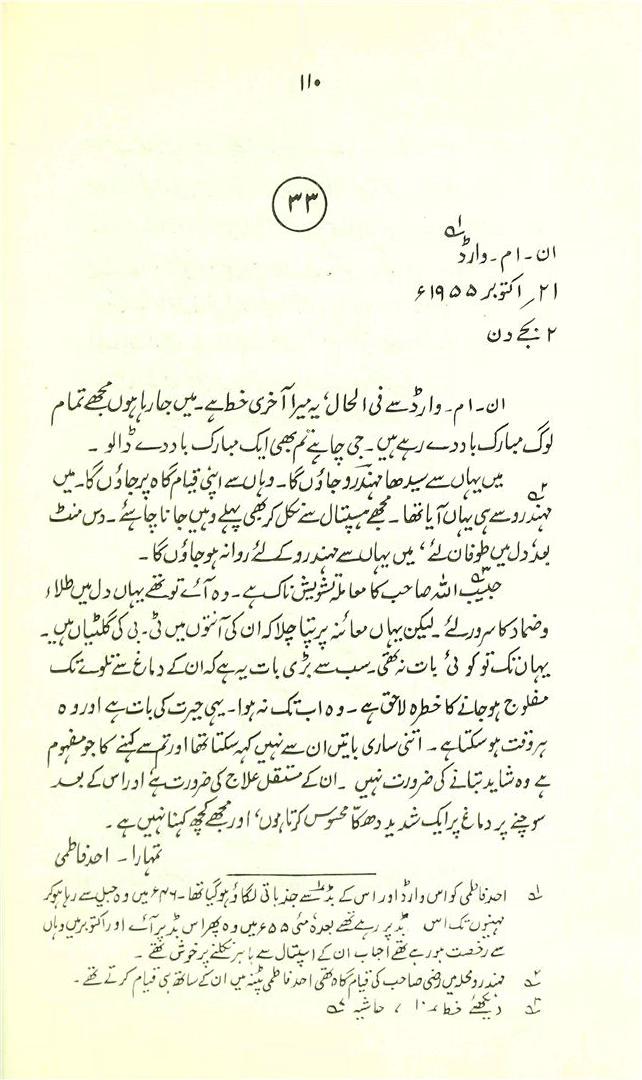 ۱۱۰
۳۳
ان ۔ ام ۔ وارڈ ۱؎
۲۱؍ اکتوبر ۱۹۵۵ء
۲ بجے دن
ان ۔ ام ۔ وارڈ سے فی الحال، یہ میرا آخری خط ہے ۔ میں جا رہا ہوں مجھے تمام
لوگ مبارک باد دے رہے ہیں ۔ جی چاہے تم بھی ایک مبارک باد دے ڈالو ۔
میں یہاں سے سیدھا مہندرو جاؤں گا ۔ وہاں سے اپنی قیام گاہ پر جاؤں گا ۔ میں
مہندرو ۲؎ سے ہی یہاں آیا تھا ۔ مجھے ہسپتال سے نکل کر بھی پہلے وہیں جانا چاہئے ۔ دس منٹ
بعد، دل میں طوفان لئے، میں یہاں سے مہندرو کے لئے روانہ ہو جاؤں گا ۔
حبیب اللہ ۳؎ صاحب کا معاملہ تشویش ناک ہے ۔ وہ آئے تو تھے یہاں دل میں طلاء
و ضماد کا سرور لئے ۔ لیکن یہاں معائنہ پر پتا چلا کہ ان کی آنتوں میں ٹی ۔ بی کی گلٹیاں ہیں ۔
یہاں تک تو کوئی بات نہ تھی ۔ سب سے بڑی بات یہ ہے کہ ان کے دماغ سے تلوے تک
مفلوج ہو جانے کا خطرہ لاحق ہے ۔ وہ اب تک نہ ہوا ۔ یہی حیرت کی بات ہے اور وہ
ہر وقت ہو سکتا ہے ۔ اتنی ساری باتیں ان سے نہیں کہہ سکتا تھا اور تم سے کہنے کا جو مفہوم
ہے وہ شاید بتانے کی ضرورت نہیں ۔ ان کے مستقل علاج کی ضرورت ہے اور اس کے بعد
سوچنے پر دماغ پر ایک شدید دھکا محسوس کرتا ہوں، اور مجھے کچھ کہنا نہیں ہے ۔
تمہارا ۔ احمد فاطمی
۱؎ احمد فاطمی کو اس وارڈ اور اس کے بڈ سے جذباتی لگاؤ ہو گیا تھا ۔ ۴۶ء میں وہ جیل سے رہا ہو کر
مہینوں تک اس بڈ پر رہے تھے بعدہٗ مئی ۵۵ء میں وہ پھر اس بڈ پر آئے اور اکتوبر میں وہاں
سے رخصت ہو رہے تھے احباب ان کے اسپتال سے باہر نکلنے پر خوش تھے ۔
۲؎ مہندرو محلہ میں رضی صاحب کی قیام گاہ تھی احمد فاطمی پٹنہ میں ان کے ساتھ ہی قیام کرتے تھے ۔
۳؎ دیکھئے خط ۱۰، حاشیہ ۷؎